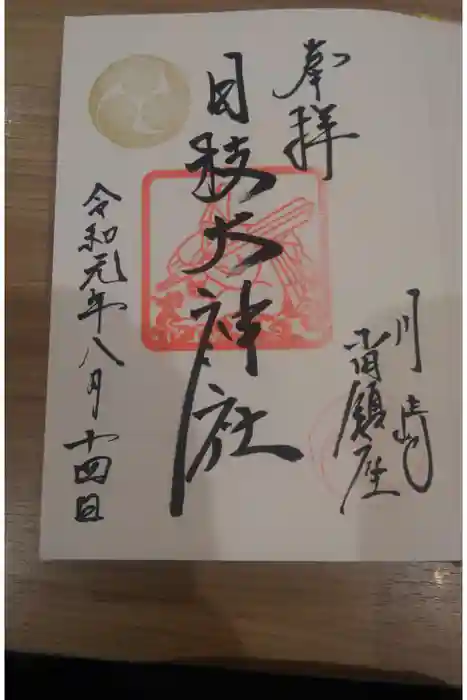 奉拝
川崎
宿鎮座
日枝大神社
令和元年八月十四日